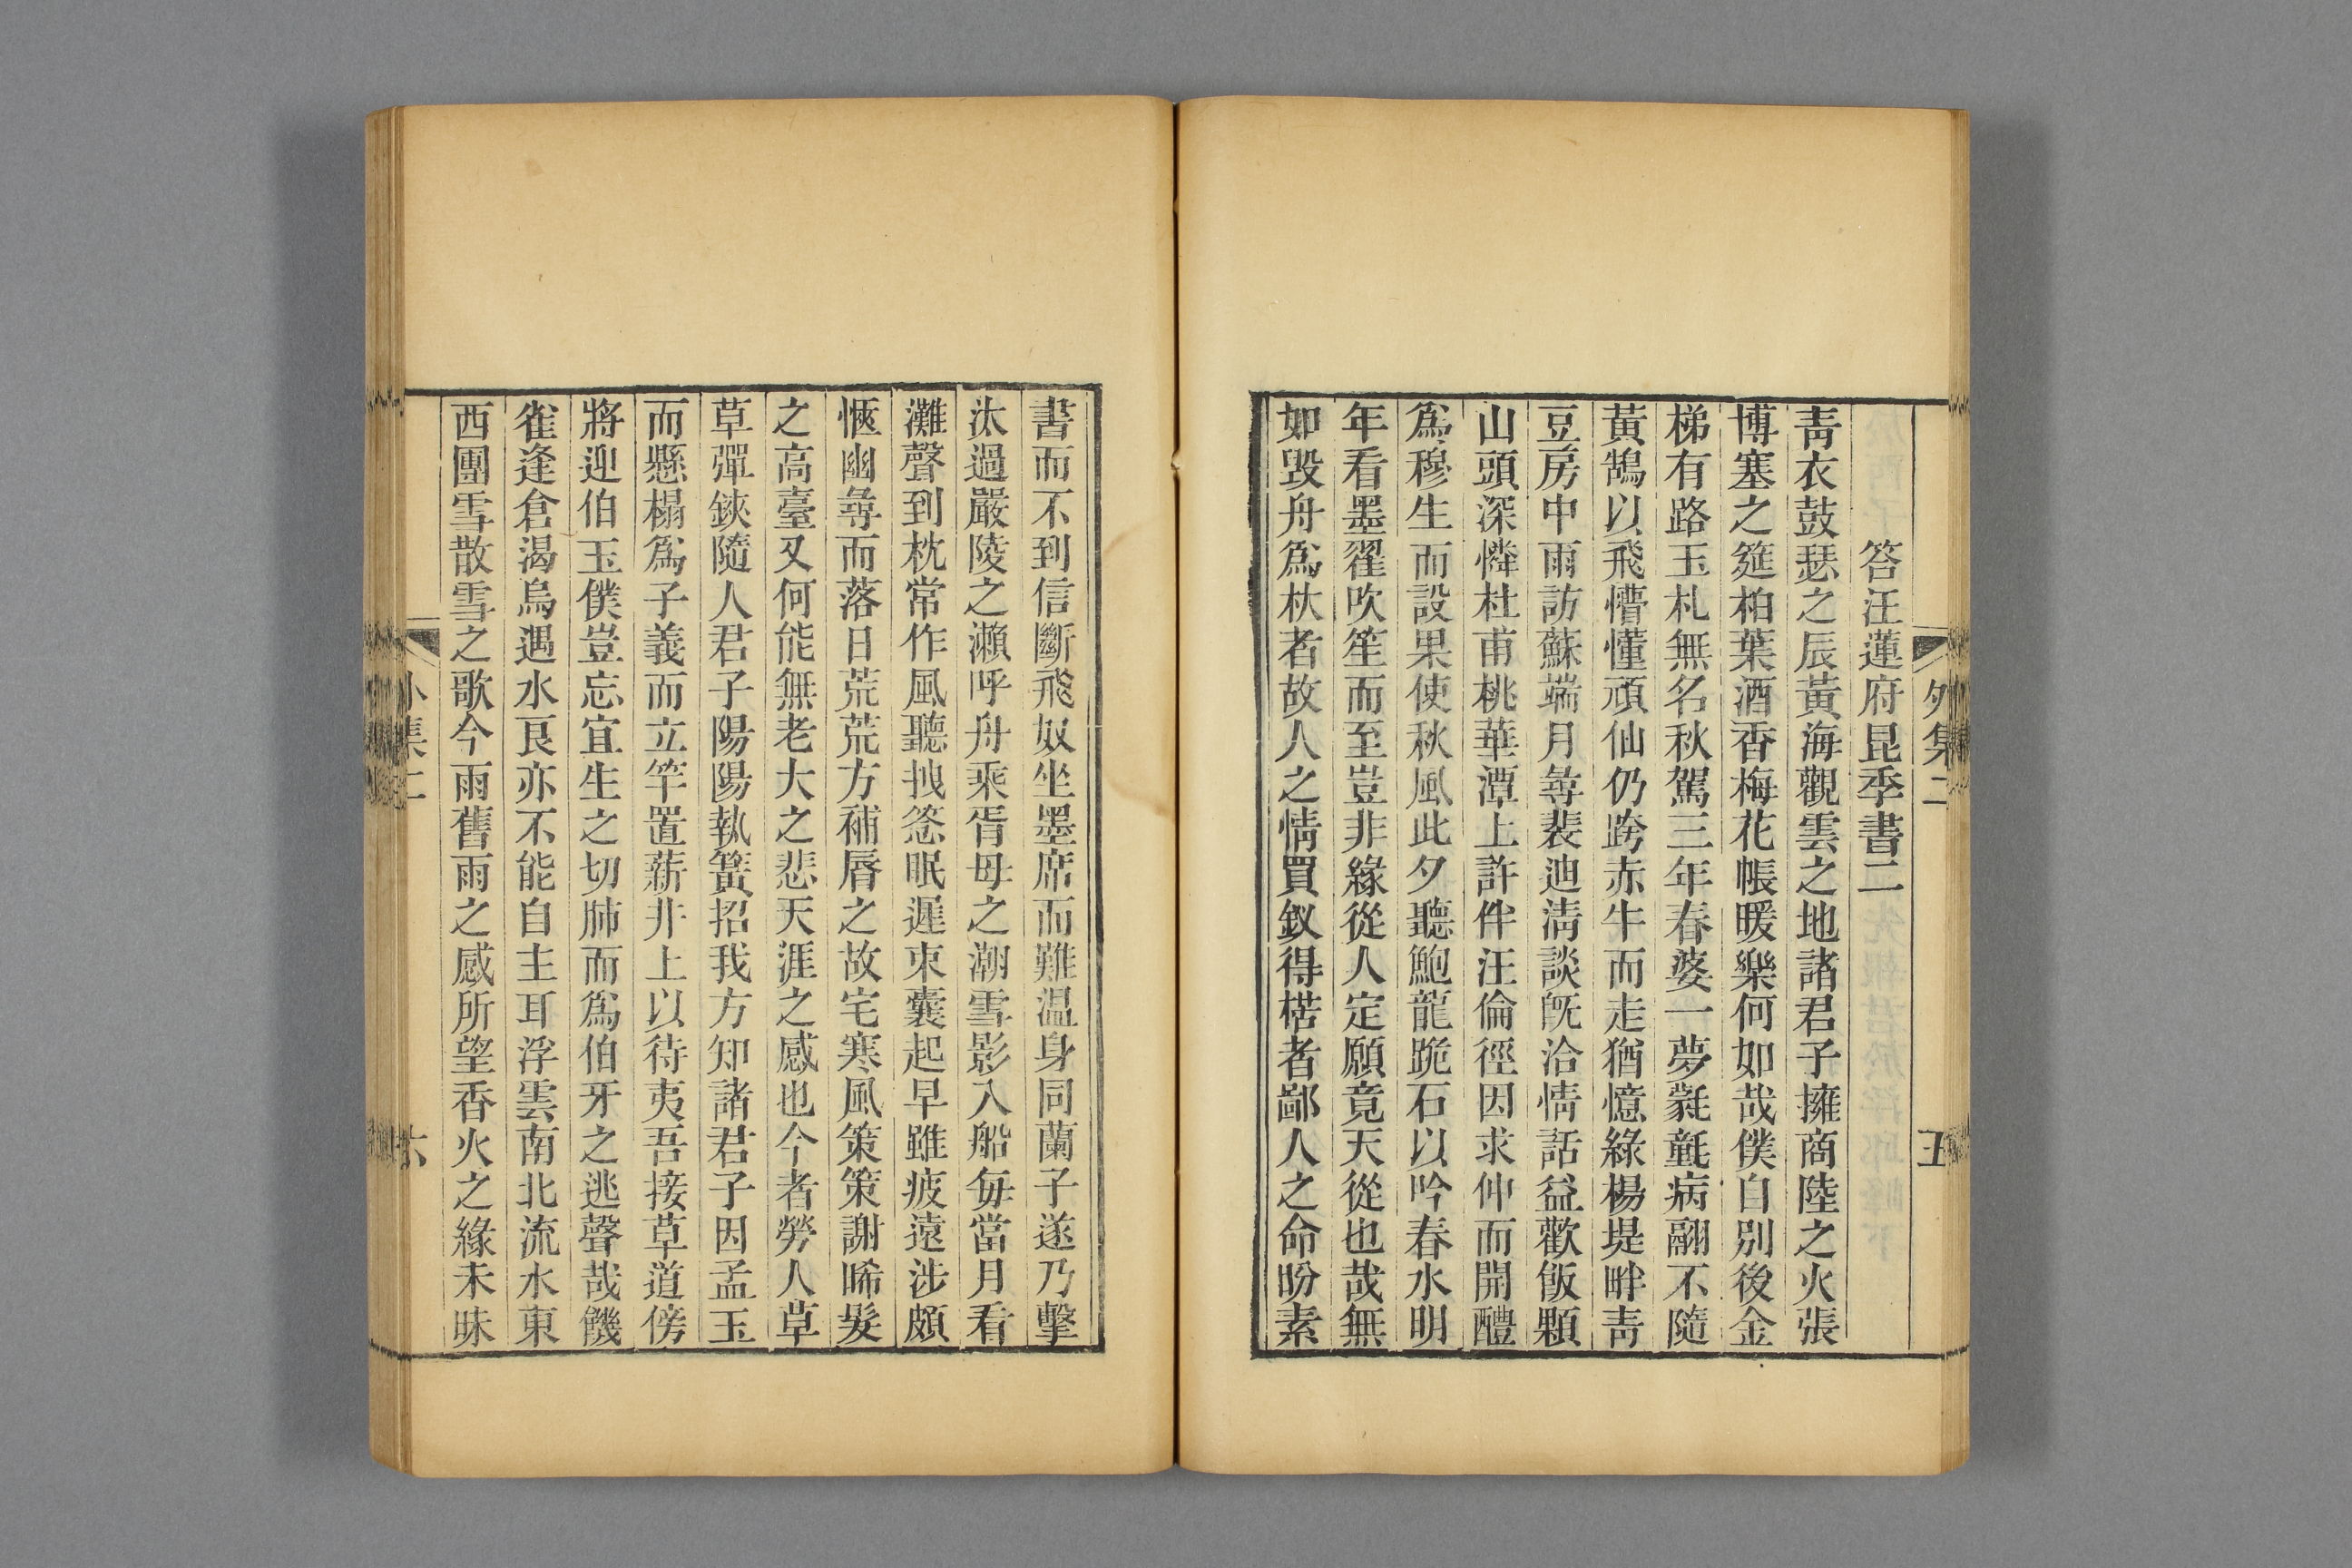 外集二
五
答汪蓮府昆季書二
靑衣鼓瑟之辰黃海觀雲之地諸君子擁商陸之火張
博塞之筵柏葉酒香梅花帳暖樂何如哉僕自別後金
梯有路玉札無名秋駕三年春婆一夢氄氃病翮不隨
黃鵠以飛懵懂頑仙仍跨赤牛而走猶憶綠楊堤畔靑
豆房中雨訪蘇端月尋裴迪淸談旣洽情話益歡飯顆
山頭深憐杜甫桃華潭上許伴汪倫徑因求仲而開醴
爲穆生而設果使秋風此夕聽鮑龍跪石以吟春水明
年看墨翟吹笙而至豈非緣從人定願竟天從也哉無
如毀舟爲杕者故人之情買釵得楛者鄙人之命盼素
書而不到信斷飛奴坐墨席而難温身同蘭子遂乃擊
汰過嚴陵之瀨呼舟乘胥母之潮雪影入船每當月看
灘聲到枕常作風聽拽慾眠遲束囊起早雖疲遠涉頗
愜幽尋而落日荒荒方補脣之故宅寒風策策謝晞髮
之高臺又何能無老大之悲天涯之感也今者勞人草
草彈鋏隨人君子陽陽執簧招我方知諸君子因孟玉
而懸榻爲子義而立竿置薪井上以待夷吾接草道傍
將迎伯玉僕豈忘宜生之切肺而爲伯牙之逃聲哉饑
雀逢倉渴烏遇水良亦不能自主耳浮雲南北流水東
西團雪散雪之歌今雨舊雨之感所望香火之緣未昧
外集二
六